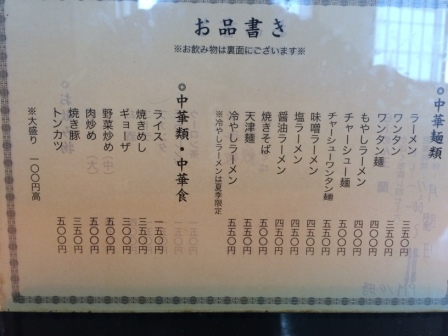 お品書き
※お飲み物は裏面にございます※
◎中華麺類
ラーメン 三五〇円
ワンタン 三五〇円
ワンタン麺 四五〇円
もやしラーメン 四五〇円
チャーシュー麺 五五〇円
チャーシューワンタン麺
味噌ラーメン 四五〇円
塩ラーメン 四五〇円
醤油ラーメン 四五〇円
焼きそば
天津麺 五五〇円
冷やしラーメン 五五〇円
※冷やしラーメンは夏季限定
◎中華類・中華食
ライス 一五〇円
焼きめし 三五〇円
ギョーザ 三〇〇円
野菜炒め 三五〇円
肉炒め 五〇〇円
焼き豚 五〇〇円
トンカツ 五〇〇円
※大盛り 一〇〇円高